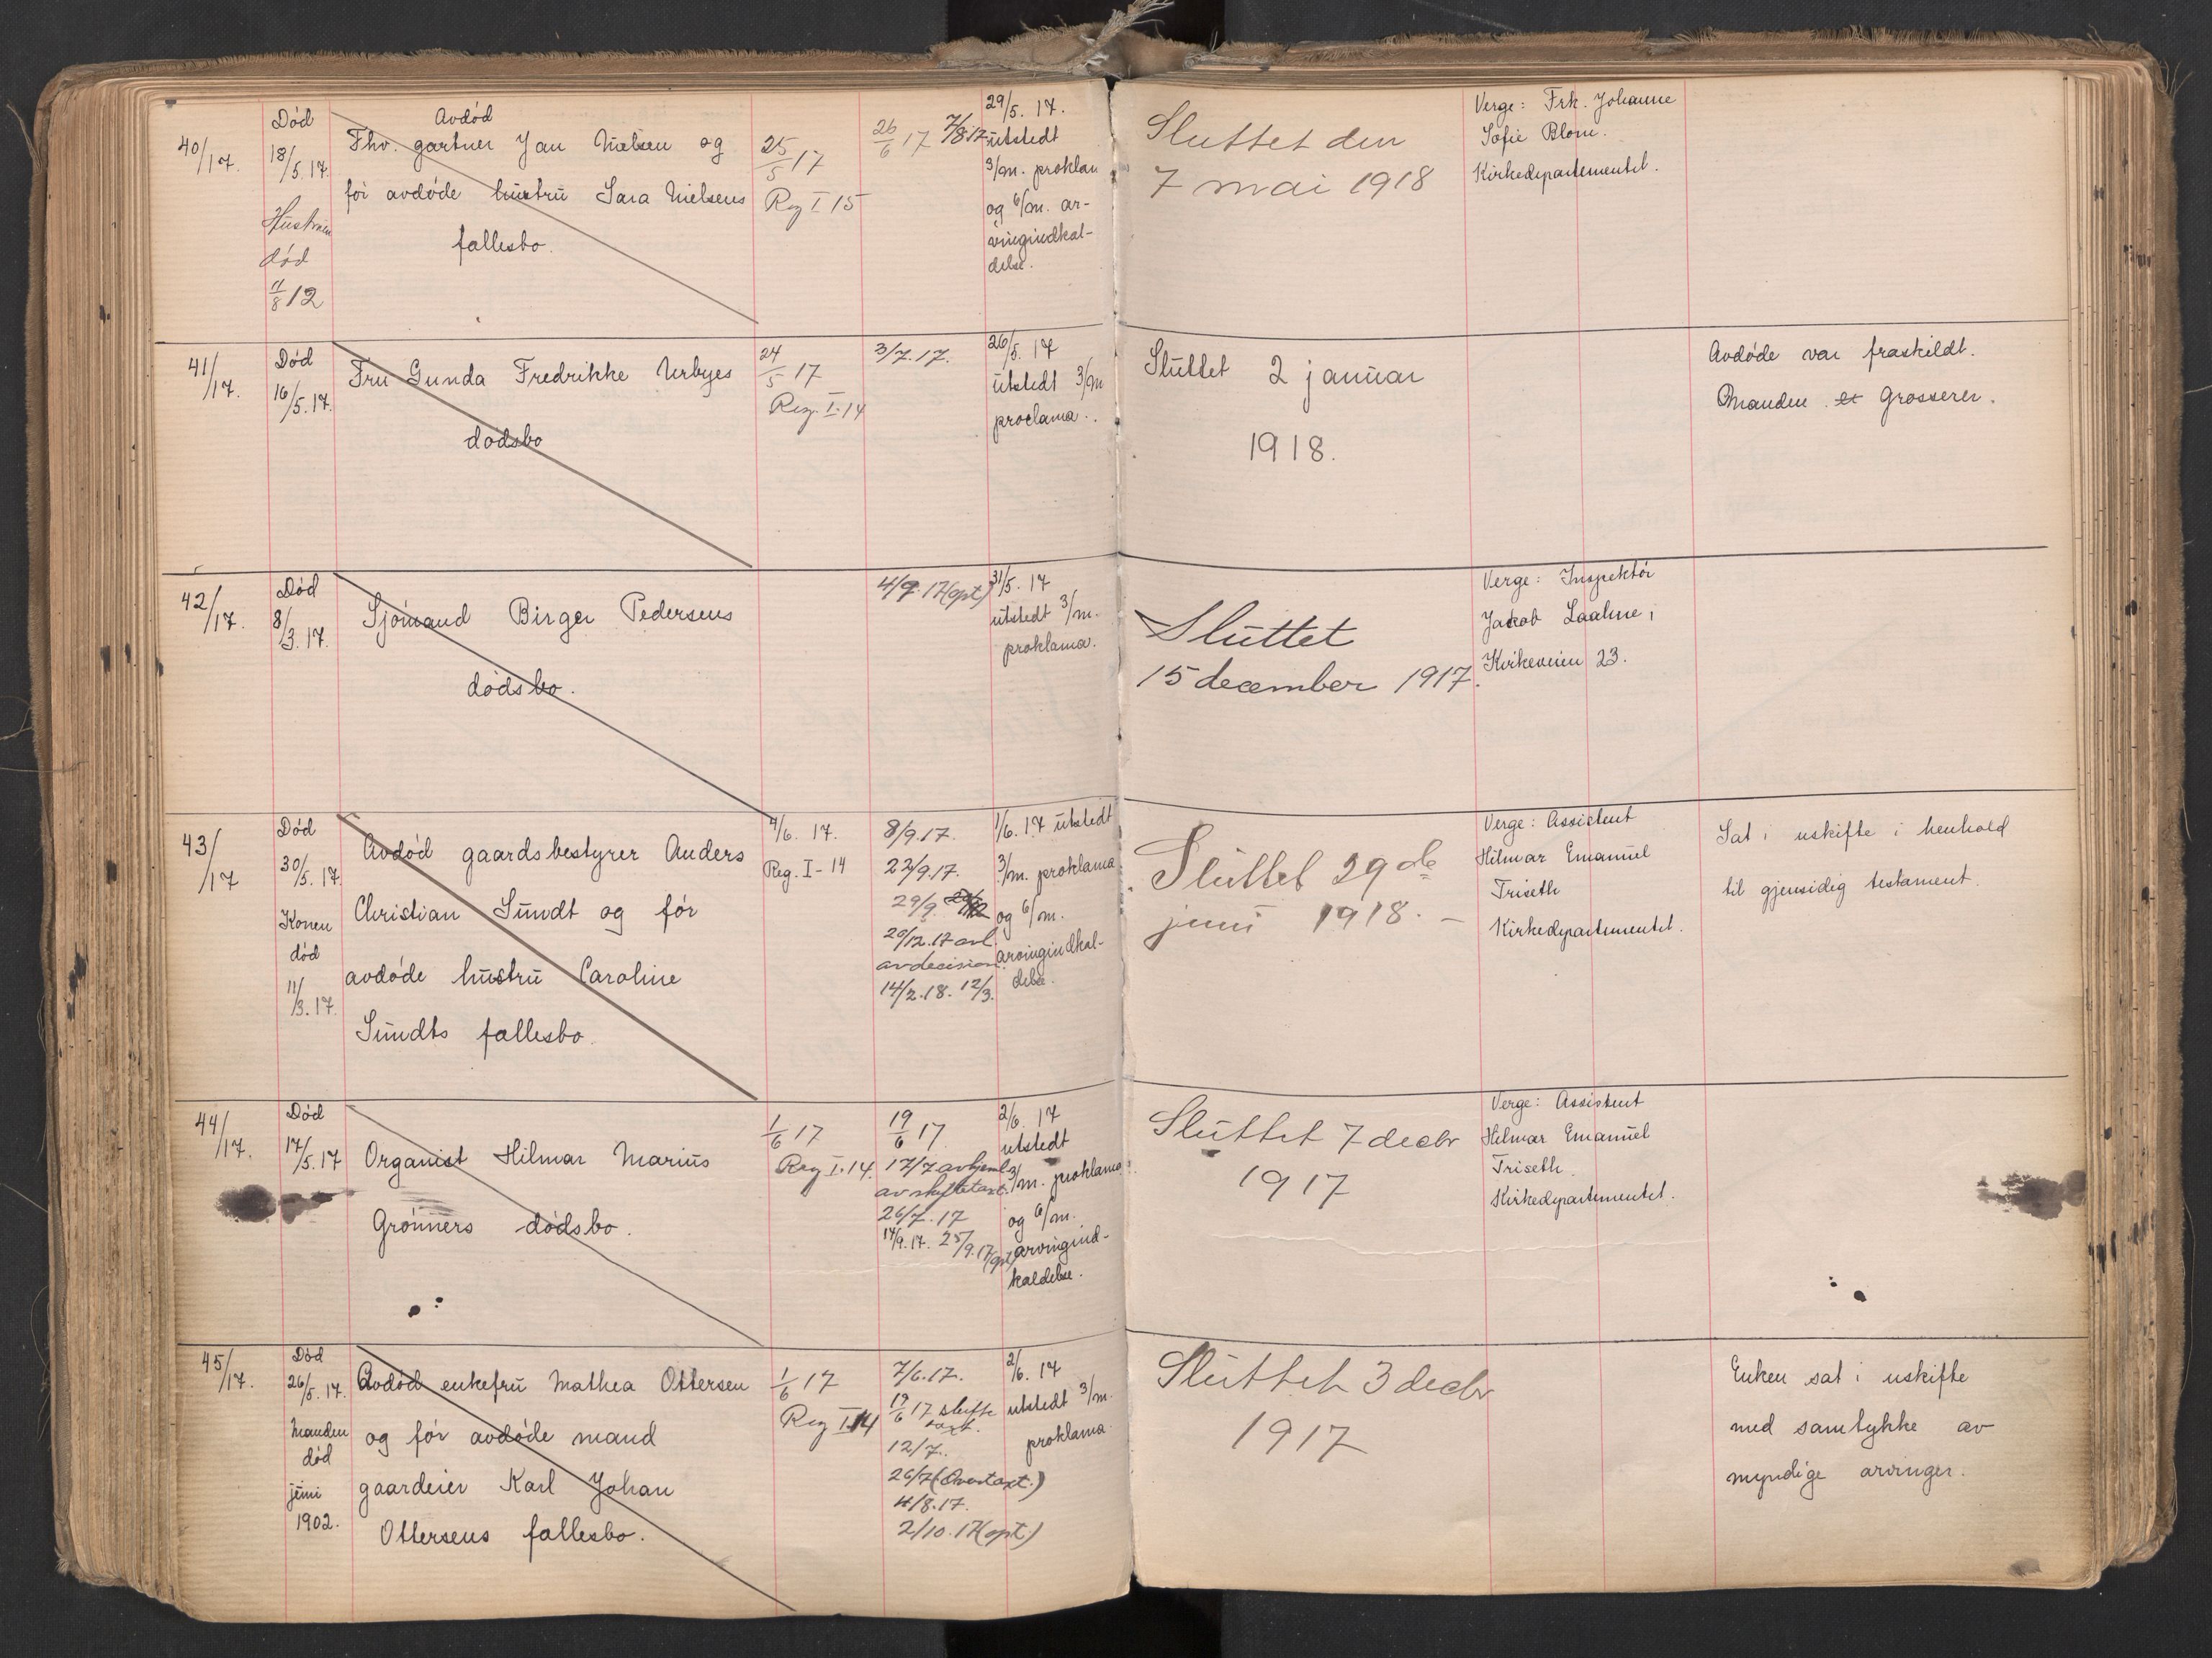 40/17.
Død
18/5.17.
Hustruen
død
11/8 12
Avdød
Fhv. gartner Jan Nielsen og
før avdøde hustru Sara Nielsens
fællesbo.
25/5 17
Reg I 15
26/6 17 7/8.17
29/5. 17.
utstedt
3/m. proklama
og 6/m. ar-
vingindkal-
delse.
Sluttet den
7 mai 1918
Verge: Frk. Johanne
Sofie Blom.
Kirkedepartementet.
41/17.
Død
16/5.17.
Fru Gunda Fredrikke Urbyes
dødsbo
24/5 17
Reg. I.14
3/7.17.
26/5. 17
utstedt 3/m
proclama.
Sluttet 2 januar
1918.
Avdøde var fraskildt.
Manden er Grosserer.
42/17.
Død
8/3.17.
Sjømand Birger Pedersens
dødsbo.
4/9.17(opt)
31/5. 17
utstedt 3/m.
proklama.
Sluttet
15 december 1917.
Verge: Inspektør
Jacob Laahne,
Kirkeveien 23.
43/17
Død
30/5.17.
Konen
død
11/3.17.
Avdød gaardsbestyrer Anders
Christian Sundt og før
avdøde hustru Caroline
Sundts fællesbo.
4/6. 17.
Reg. I-14
8/9.17.
22/9.17.
29/9.
20/12.17 avl.
av decision.
14/2.18. 12/3.
1/6.17 utstedt
3/m. proklama
og 6/m.
arvingindkal-
delse.
Sluttet 29de
juni 1918. -
Verge: Assistent
Hilmar Emanuel
Triseth
Kirkedepartementet.
Sat i uskifte i henhold
til gjensidig testament.
44/17.
Død
17/5.17
Organist Hilmar Marius
Grønners dødsbo.
1/6 17
Reg I.14.
19/6 17
17/7 avhjeml.
av skiftetaxt.
26/7.17
14/9.17. 25/9.17(opt)
2/6. 17
utstedt
3/m. proklama
og 6/m.
arvingind-
kaldelse.
Sluttet 7 decbr
1917
Verge: Assistent
Hilmar Emanuel
Triseth.
Kirkedepartementet.
45/17.
Død
26/5.17.
Manden
død
juni
1902.
Avdød enkefru Mathea Ottersen
og før avdøde mand
gaardeier Karl Johan
Ottersens fællesbo.
1/6 17
Reg I 14
7/6.17.
19/6 17 skifte
taxt.
12/7.
26/7 (Overtaxt.)
4/8.17.
2/10.17(opt.)
2/6. 17
utstedt 3/m.
proklama.
Sluttet 3 decbr
1917
Enken sat i uskifte
med samtykke av
myndige arvinger.